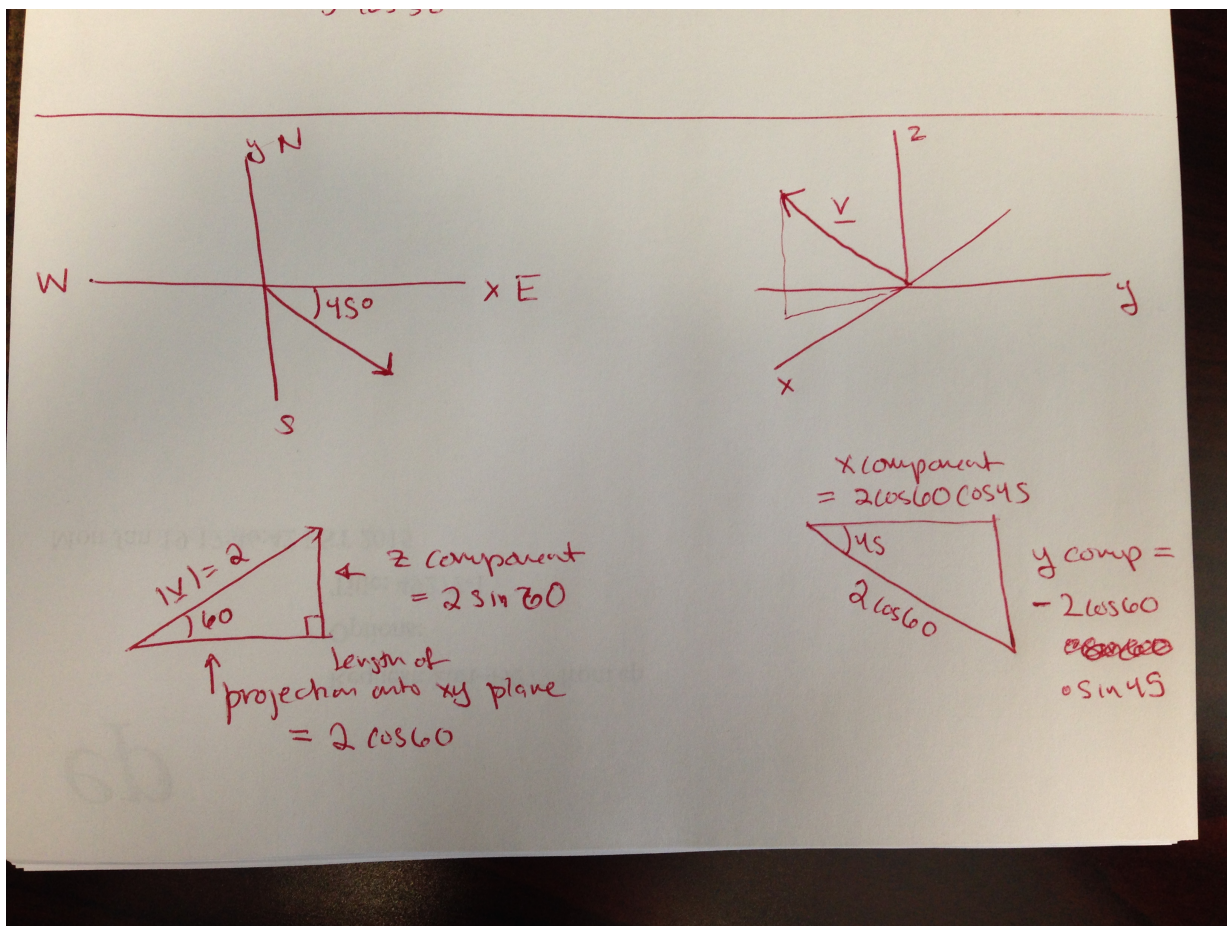 y N
W
x E
45°
S
z
v
y
x
|v| = 2
60
z component
= 2 sin 60
Length of
projection onto xy plane
= 2 cos60
x component
= 2cos60 cos45
45
2 cos60
y comp =
- 2cos60
• sin 45